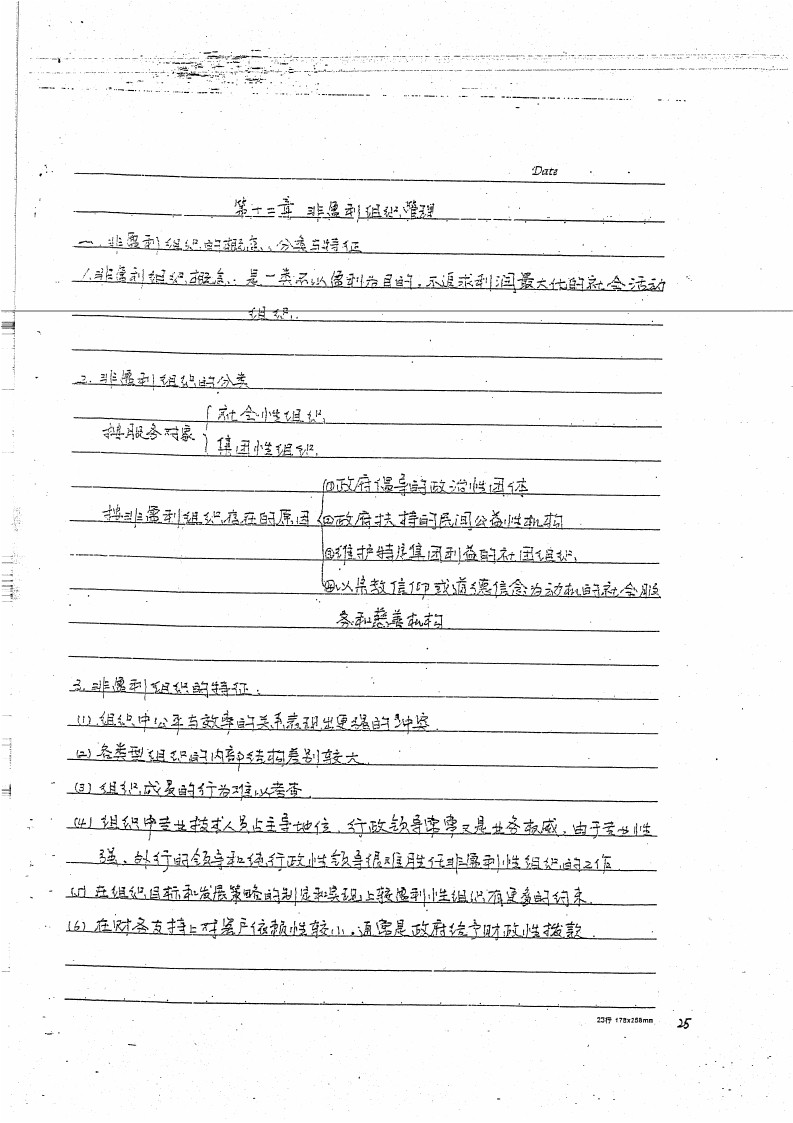 Date
第十二章 非盈利组织管理
一.非盈利组织的概念、分类与特征
1.非盈利组织概念:是一类不以盈利为目的,不追求利润最大化的社会活动
组织.
2.非盈利组织的分类
按服务对象
社会性组织.
集团性组织.
按非盈利组织存在的原因
①政府倡导的政治性团体
②政府扶持的民间公益性机构
③维护特定集团利益的社团组织.
④以宗教信仰或道德信念为动机的社会服
务和慈善机构
3.非盈利组织的特征:
(1)组织中公平与效率的关系表现出更强的冲突
(2)各类型组织的内部结构差别较大
(3)组织成员的行为难以考查
(4)组织中专业技术人员占主导地位,行政领导常常又是业务权威,由于专业性
强,外行的领导和纯行政性领导很难胜任非盈利性组织的工作
(5)在组织目标和发展策略的制定和实现上较盈利性组织有更多的约束.
(6)在财务支持上对客户依赖性较小,通常是政府给予财政性拨款.
23行 178x258mm
25